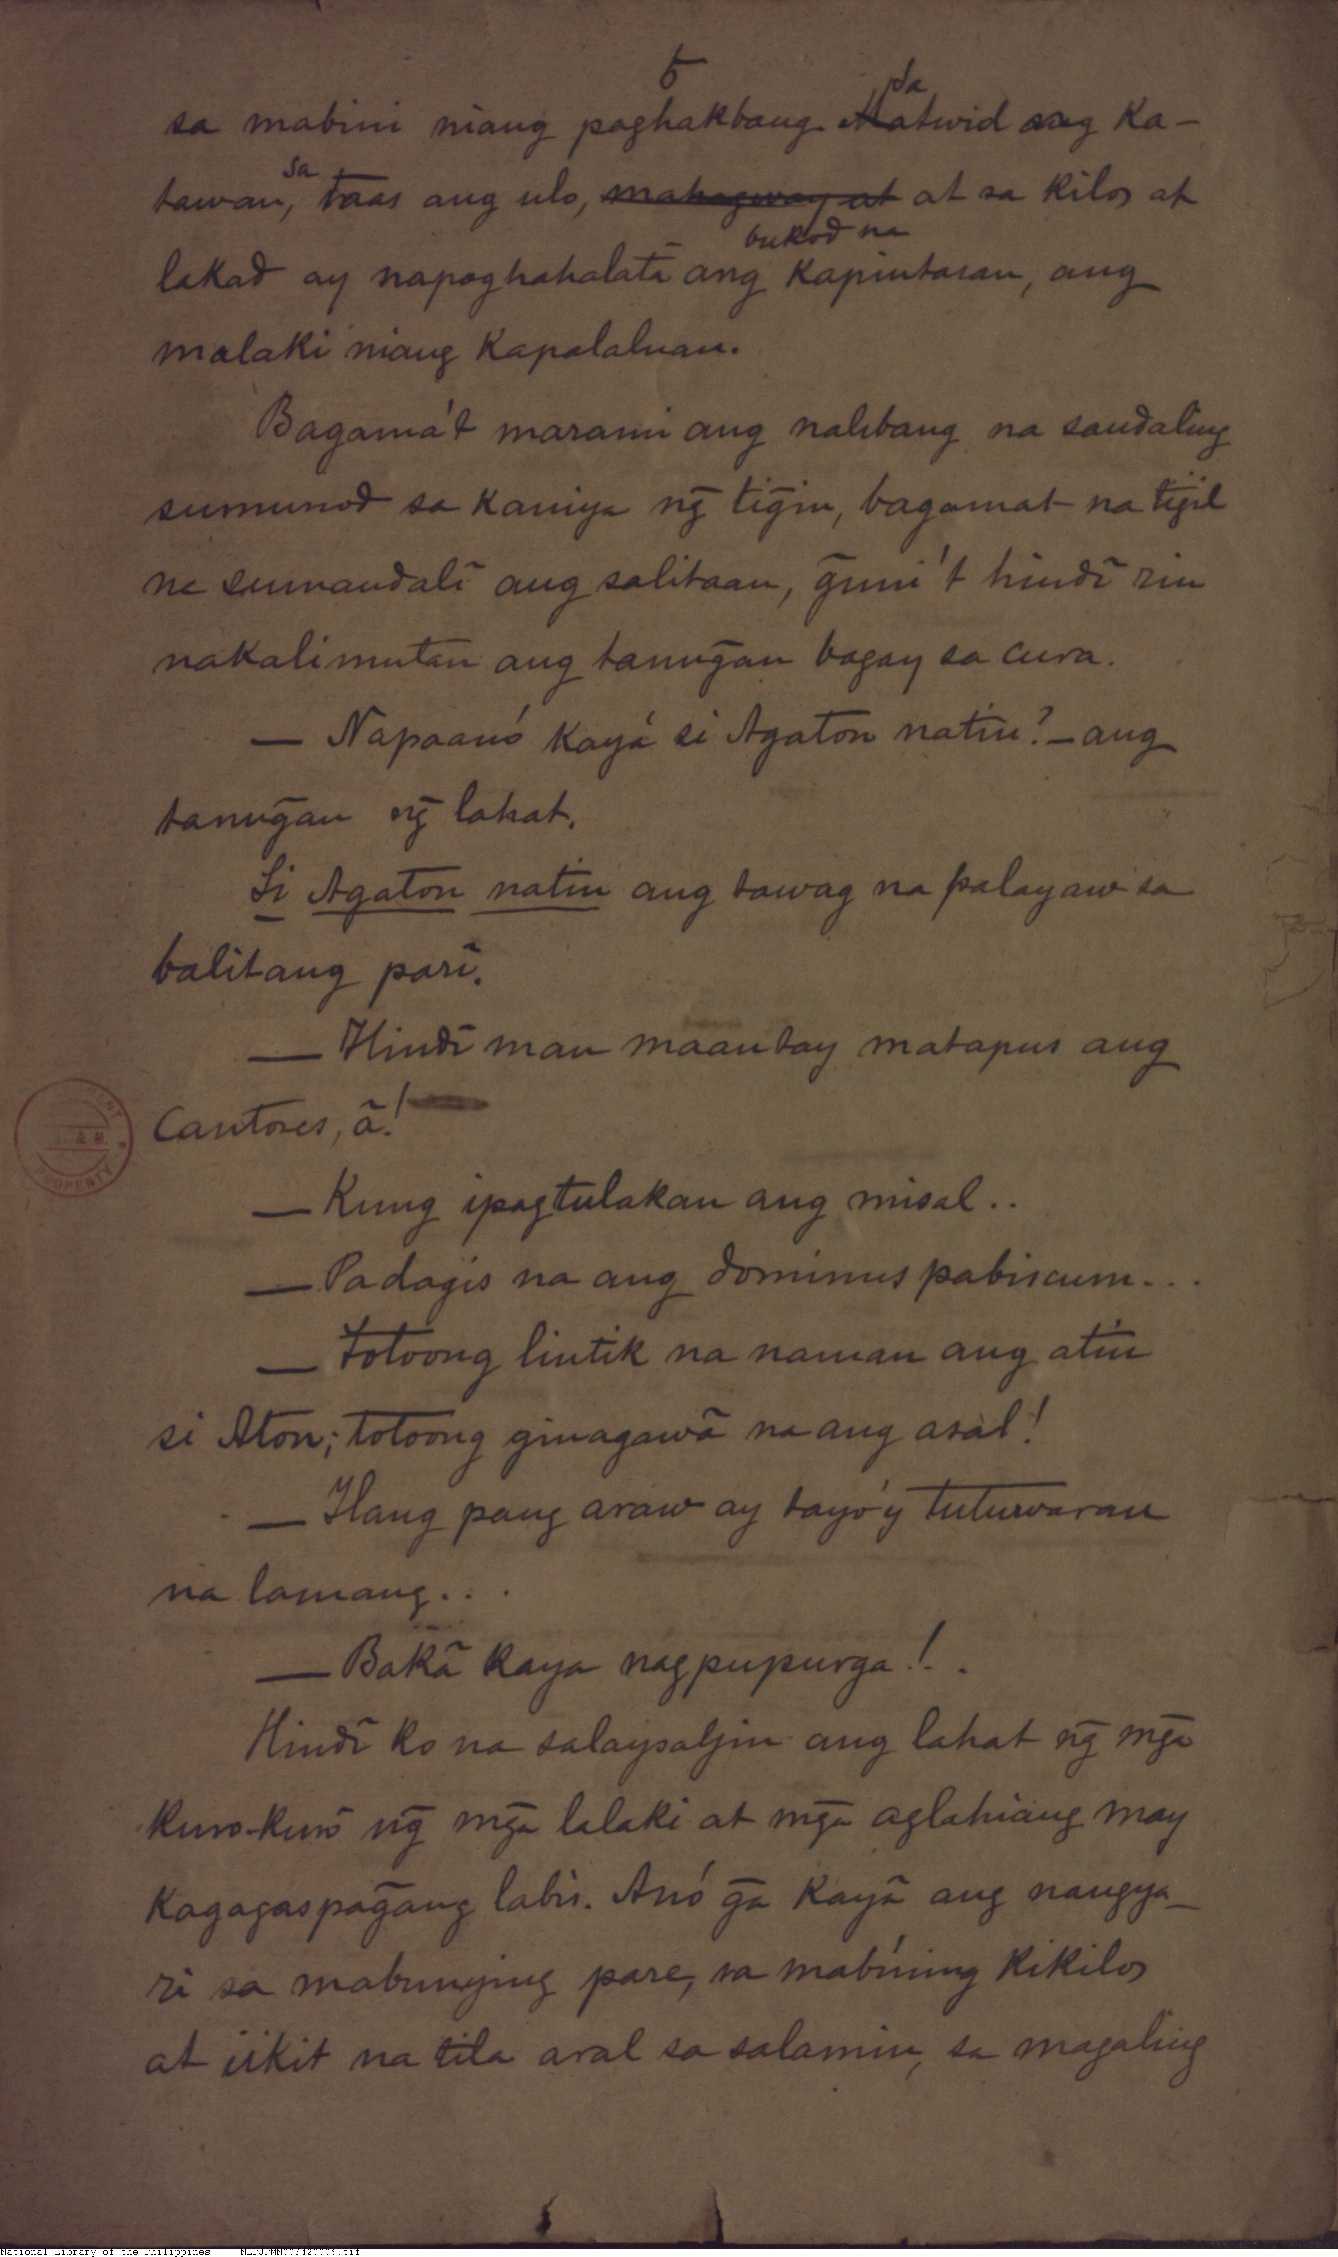 5
sa mabini niang paghakbang. Matwid ang ka-
tawan, sa taas ang ulo, mahagway at at sa kilos at
bukod na
lakad ay napaghahalatã ang kapintasan, ang
malaki niang kapalaluan.
Bagama't marami ang nalibang na sandaling
sumunod sa kaniya ng̃ tig̃in, bagamat na tigil
na sumandalĩ ang salitaan, g̃uni't hindĩ rin
nakalimutan ang tanug̃an bagay sa cura.
— Napaanó kayá si Agaton natin? — ang
tanug̃an ng̃ lahat.
Si Agaton natin ang tawag na palayaw sa
balitang parĩ.
— Hindĩ man maantay matapus ang
Cantores, ã!
— Kung ipagtulakan ang misal..
— Padagis na ang dominus pabiscum...
— Totoong lintik na naman ang atin
si Aton; totoong ginagawã na ang asal!
— Ilang pang araw ay tayo'y tutuwaran
na lamang...
— Bakã kaya nagpupurga!..
Hindĩ ko na salaysaljin ang lahat ng̃ mg̃a
kuro-kurõ ng̃ mg̃a lalaki at mg̃a aglahiang may
kagagaspag̃ang labis. Anó g̃a kayã ang nangya-
ri sa mabunying pare, sa mabining kikilos
at iikit na tila aral sa salamin, sa magaling
PROPERTY
National Library of the Philippines